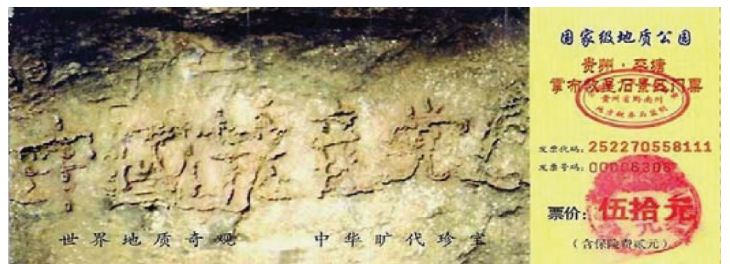 中國共產党亡
世界地质奇观 中华旷代珍宝
国家级地质公园
贵州·平塘
掌布救星石景区门票
贵州省黔南州
发票代码: 252270558111
发票号码: 00006306
票价: 伍拾元
(含保险费贰元)